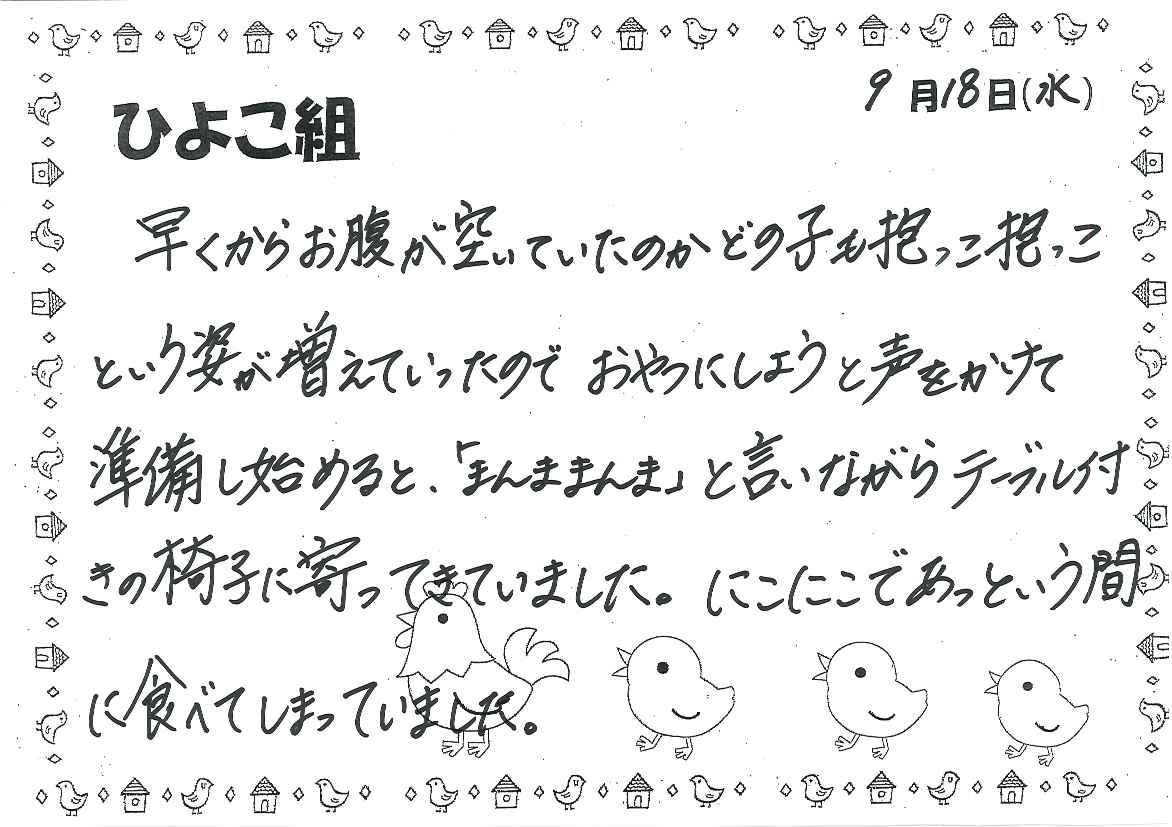 9月18日(水)
ひよこ組
早くからお腹が空いていたのかどの子も抱っこ抱っこ
という姿が増えていったので おやつにしようと声をかけて
準備し始めると、「まんままんま」と言いながらテーブル付
きの椅子に寄ってきていました。にこにこであっという間
に食べてしまっていました。